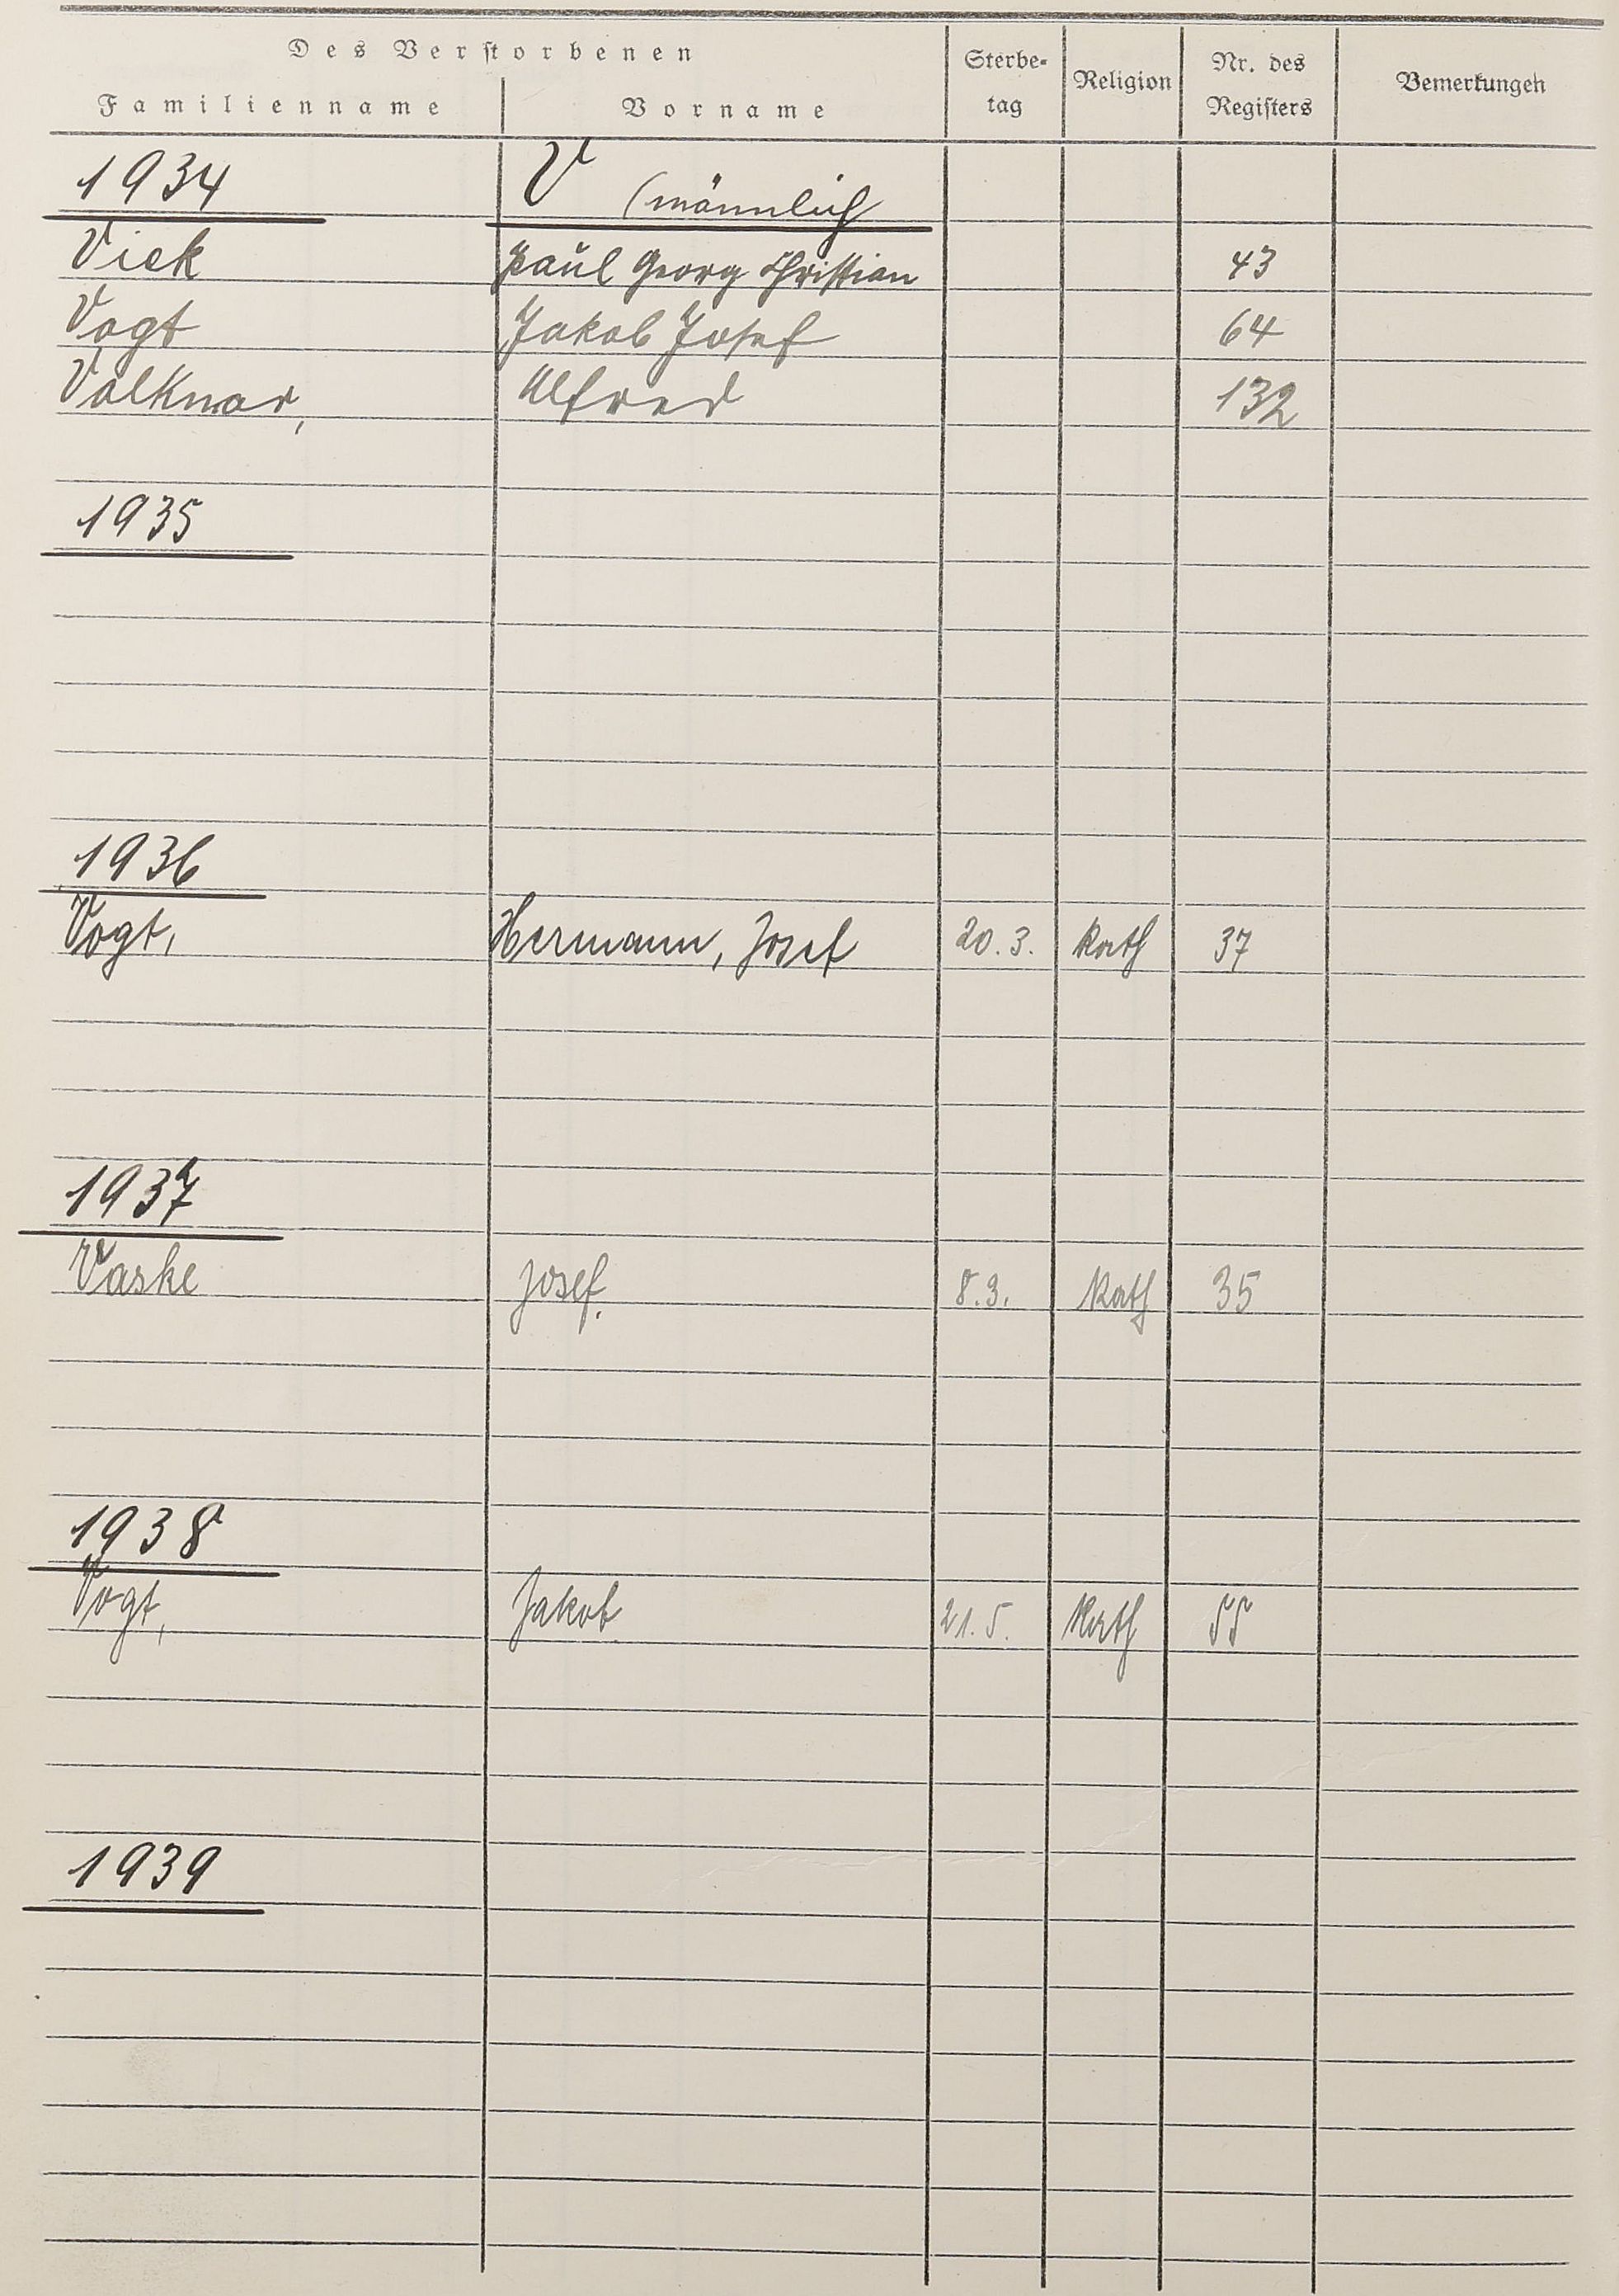 Des Verstorbenen
Familienname Vorname Sterbe-tag Religion Nr. des Registers Bemerkungen
1934 V (männlich
Viek Paul Georg Christian 43
Vogt Jakob Josef 64
Volkmar, Alfred 132
1935
1936
Vogt, Hermann, Josef 20.3. Kath 37
1937
Vaske Josef. 8.3. Kath 35
1938
Vogt, Jakob 21.5. Kath 55
1939